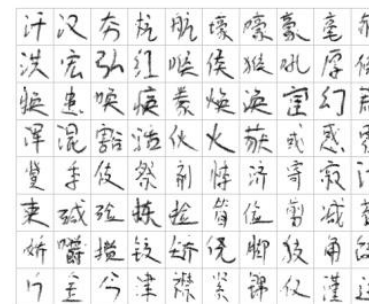 汗 汉 夯 杭 航 壕 嚎 豪 毫
洪 宏 弘 红 喉 侯 猴 吼 厚
换 患 唤 痪 豢 焕 涣 宦 幻
浑 混 豁 活 伙 火 获 或 惑
冀 季 伎 祭 剂 悸 济 寄 寂
柬 碱 硷 拣 捡 简 俭 剪 减
娇 嚼 搅 铰 矫 侥 脚 狡 角
斤 金 今 津 襟 紧 锦 仅 谨